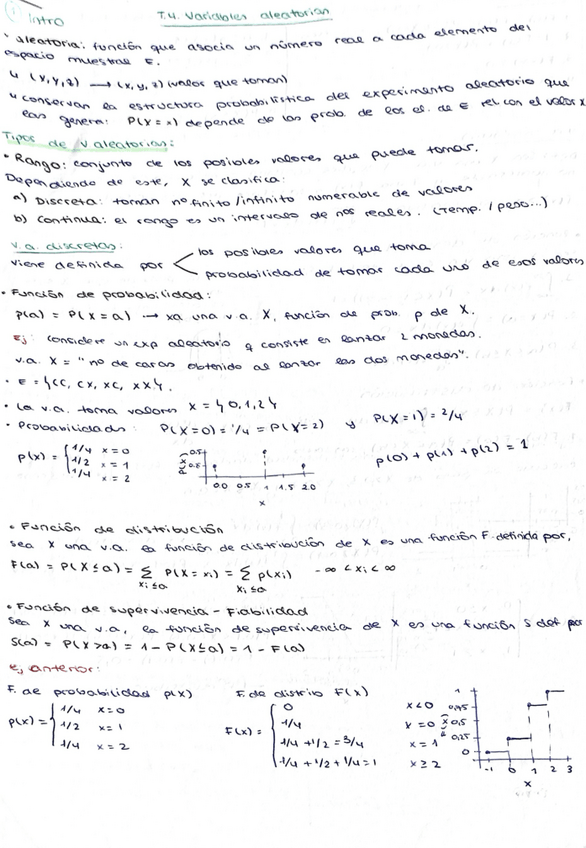 T.4. Variables aleatorias
① Intro
• aleatoria: función que asocia un número real a cada elemento del
espacio muestral E.
↳ (X,Y,Z) → (x,y,z) (valor que toman)
↳ conservan la estructura probabilística del experimento aleatorio que
las genera: P(X=x) depende de las prob. de los el. de E rel con el valor x
Tipos de V aleatorias:
• Rango: conjunto de los posibles valores que puede tomar.
Dependiendo de este, X se clasifica:
a) Discreta: toman nº finito/infinito numerable de valores
b) Continua: el rango es un intervalo de nos reales. (Temp. / peso...)
v.a. discretas:
viene definida por < los posibles valores que toma
probabilidad de tomar cada uno de esos valores
• Función de probabilidad:
p(a) = P(X=a) → xa una v.a. X, función de prob. p de X.
Ej: considere un exp aleatorio q consiste en lanzar 2 monedas.
v.a. X = "no de caras obtenido al lanzar las dos monedas".
• E = {CC, CX, XC, XX}.
• La v.a. toma valores X = {0,1,2}
• Probabilidades: P(X=0) = 1/4 = P(X=2) y P(X=1) = 2/4
p(x) = { 1/4 x=0
1/2 x=1
1/4 x=2
0.5
0.0 0.5 1 1.5 2.0
x
p(0) + p(1) + p(2) = 1
• Función de distribución
Sea X una v.a. la función de distribución de X es una función F. definida por,
F(a) = P(X≤a) = Σ P(X=xi) = Σ p(xi) -∞ < xi < ∞
xi≤a xi≤a
• Función de supervivencia - Fiabilidad
Sea X una v.a, la función de supervivencia de X es una función S def por
S(a) = P(X>a) = 1 - P(X≤a) = 1 - F(a)
ej anterior:
F. de probabilidad p(x) F. de distrib F(x)
p(x) = { 1/4 x=0
1/2 x=1
1/4 x=2
F(x) = { 0 x<0
1/4 x=0
1/4 + 1/2 = 3/4 x=1
1/4 + 1/2 + 1/4 = 1 x≥2
1
0,75
0,5
0,25
0
-1 0 1 2 3
x